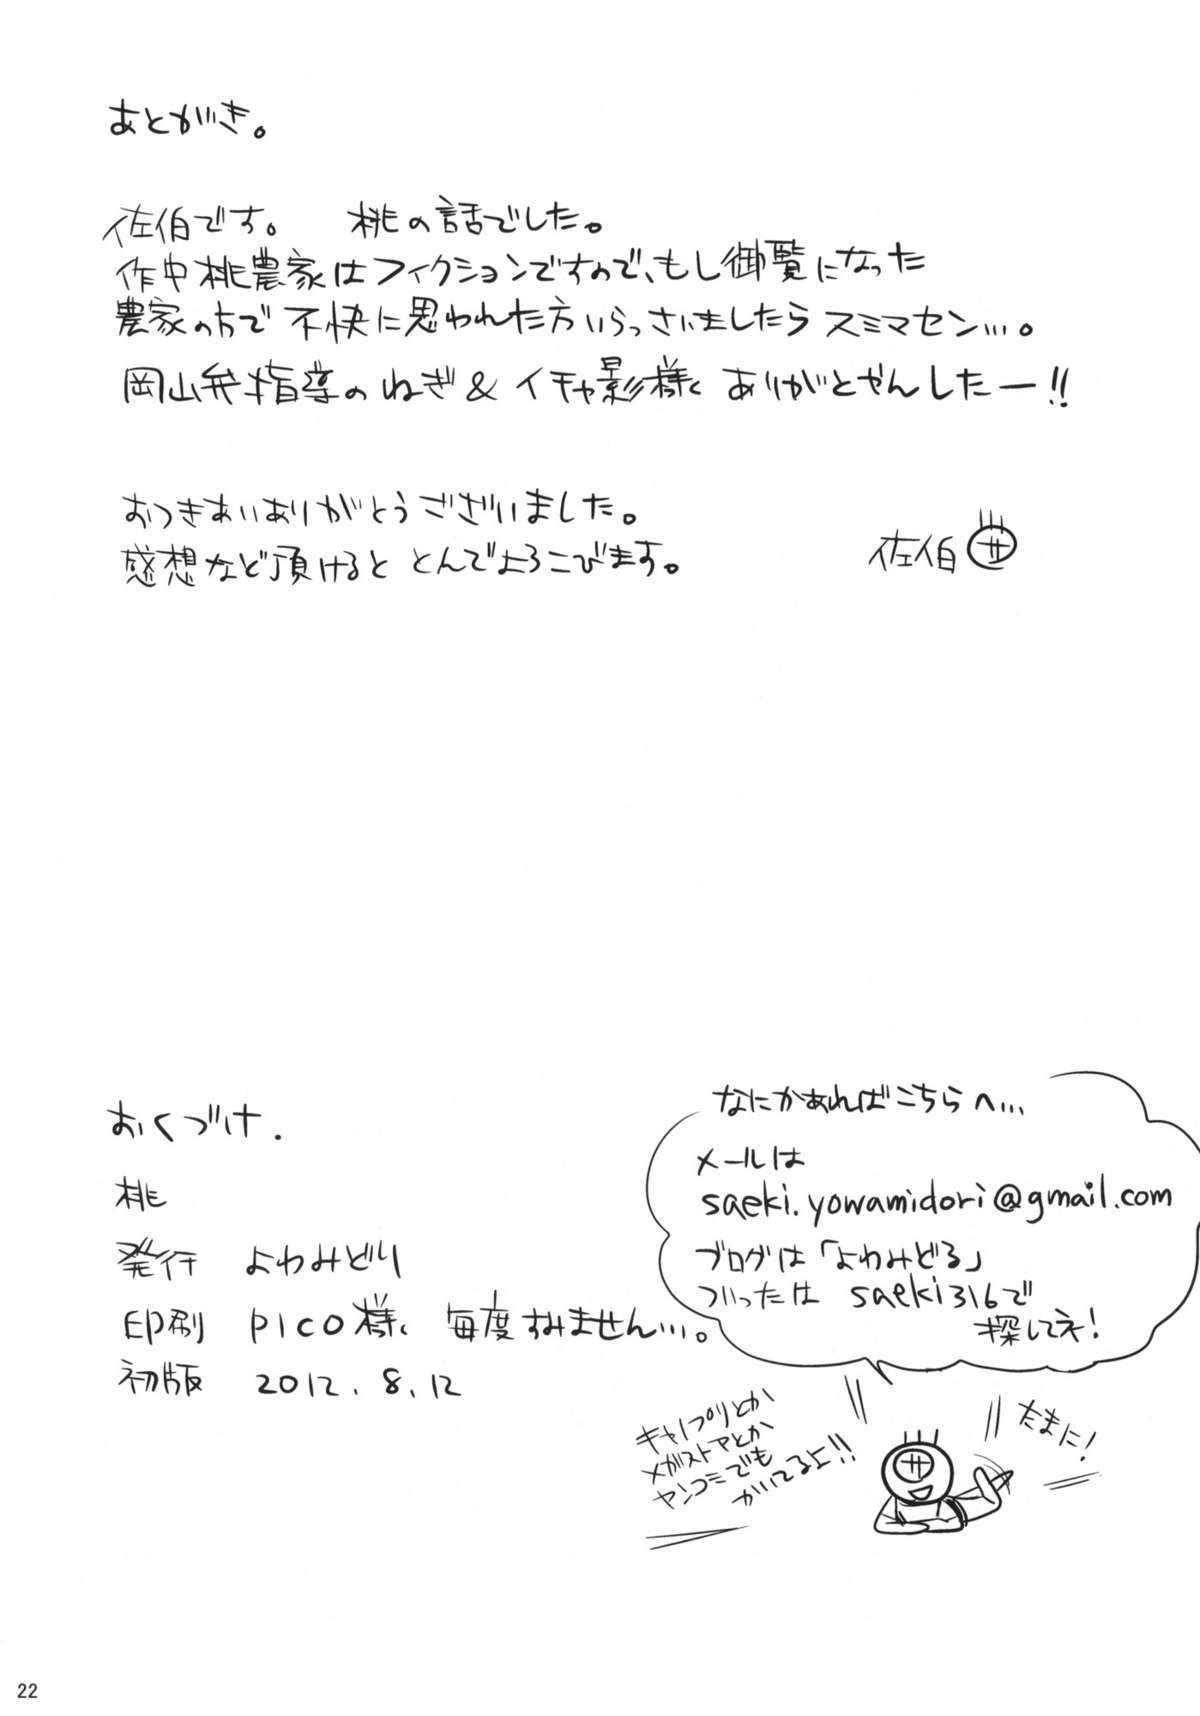 あとがき。
佐伯です。　桃の話でした。
作中桃農家はフィクションですので、もし御覧になった
農家の方で不快に思われた方いらっさいましたらスミマセン…。
岡山弁指導のねぎ＆イチャ影様 ありがとやんしたー!!
おつきあいありがとうございました。
感想など頂けると とんでよろこびます。
佐伯 サ
おくづけ.
桃
発行　よわみどり
印刷　pico様 毎度すみません…。
初版　2012.8.12
なにかあればこちらへ…
メールは
saeki.yowamidori@gmail.com
ブログは「よわみどる」
ついったは saeki316で
探してネ!
キャノプリとか
メガストアとか
ヤンコミでも
かいてるよ!!
たまに!
サ
22